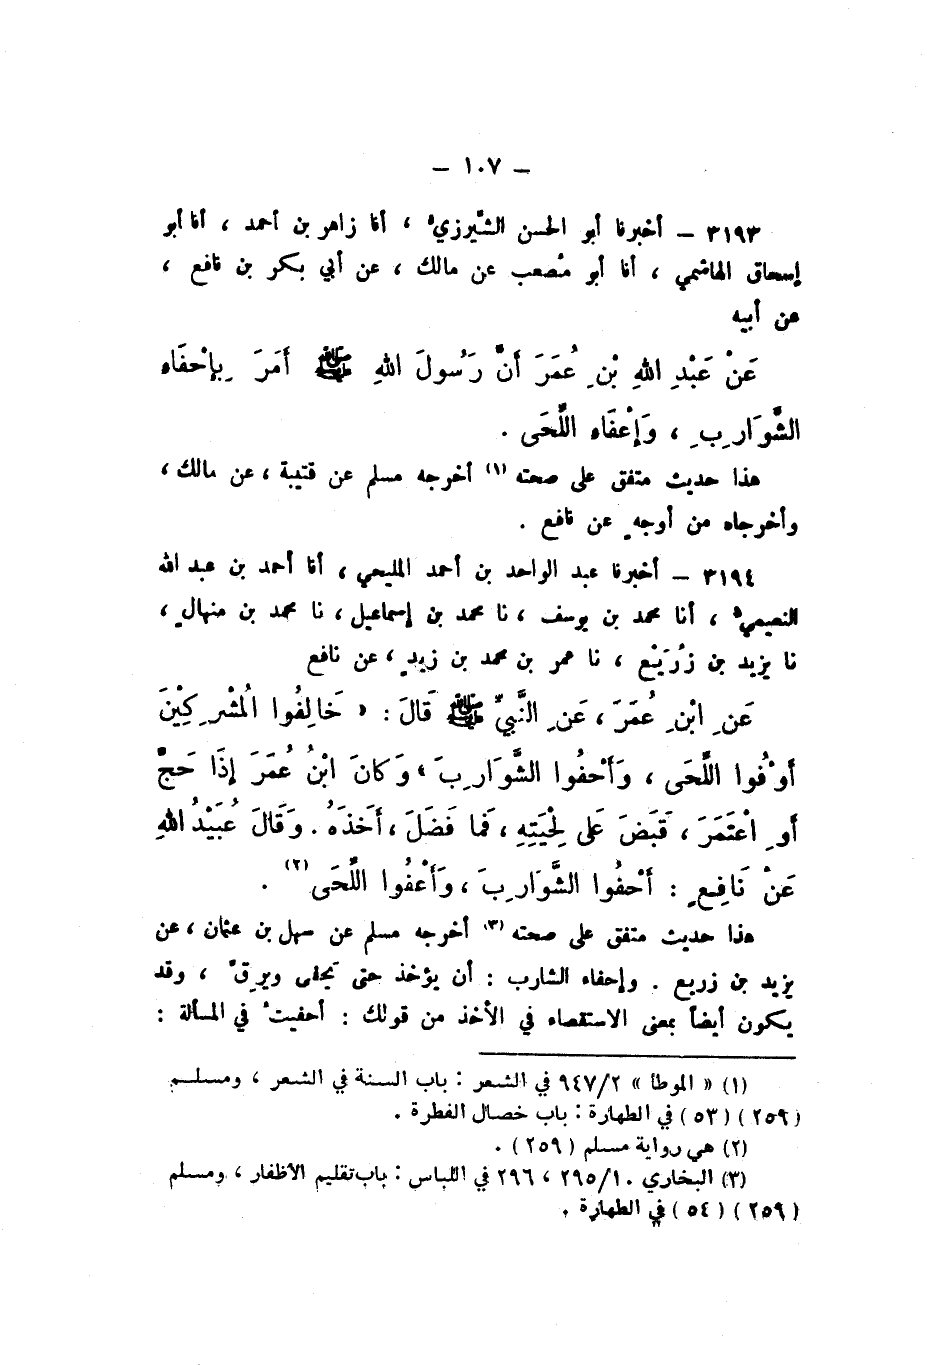 – ١٠٧ –
٣١٩٣ – أخبرنا أبو الحسن الشِّيرزيُّ ، أنا زاهر بن أحمد ، أنا أبو
إسحاق الهاشمي ، أنا أبو مُصعب عن مالك ، عن أبي بكر بن نافع ،
عن أبيه
عَنْ عَبْدِ اللهِ بْنِ عُمَرَ أَنَّ رَسُولَ اللهِ ﷺ أَمَرَ بِإِحْفَاءِ
الشَّوَارِبِ ، وَإِعْفَاءِ اللِّحَى .
هذا حديث متفق على صحته (١) أخرجه مسلم عن قتيبة ، عن مالك ،
وأخرجاه من أوجهٍ عن نافع .
٣١٩٤ – أخبرنا عبد الواحد بن أحمد المليحي ، أنا أحمد بن عبد الله
النعيميُّ ، أنا محمد بن يوسف ، نا محمد بن إسماعيل ، نا محمد بن منهالٍ ،
نا يزيد بن زُرَيْع ، نا عمر بن محمد بن زيدٍ ، عن نافع
عَنِ ابْنِ عُمَرَ ، عَنِ النَّبِيِّ ﷺ قَالَ : « خَالِفُوا الْمُشْرِكِيْنَ
أَوْفُوا اللِّحَى ، وَأَحْفُوا الشَّوَارِبَ » وَكَانَ ابْنُ عُمَرَ إِذَا حَجَّ
أَوِ اعْتَمَرَ ، قَبَضَ عَلَى لِحْيَتِهِ ، فَمَا فَضَلَ ، أَخَذَهُ . وَقَالَ عُبَيْدُ اللهِ
عَنْ نَافِعٍ : أَحْفُوا الشَّوَارِبَ ، وَأَعْفُوا اللِّحَى (٢) .
هذا حديث متفق على صحته (٣) أخرجه مسلم عن سهل بن عثمان ، عن
يزيد بن زريع . وإحفاء الشارب : أن يؤخذ حتى يَحفى ويرِقَّ ، وقد
يكون أيضاً بمعنى الاستقصاء في الأخذ من قولك : أحفيتُ في المسألة :
(١) « الموطأ » ٩٤٧/٢ في الشعر : باب السنة في الشعر ، ومسلم
(٢٥٩) (٥٣) في الطهارة : باب خصال الفطرة .
(٢) هي رواية مسلم (٢٥٩) .
(٣) البخاري ٢٩٥/١٠ ، ٢٩٦ في اللباس : باب تقليم الأظفار ، ومسلم
(٢٥٩) (٥٤) في الطهارة .